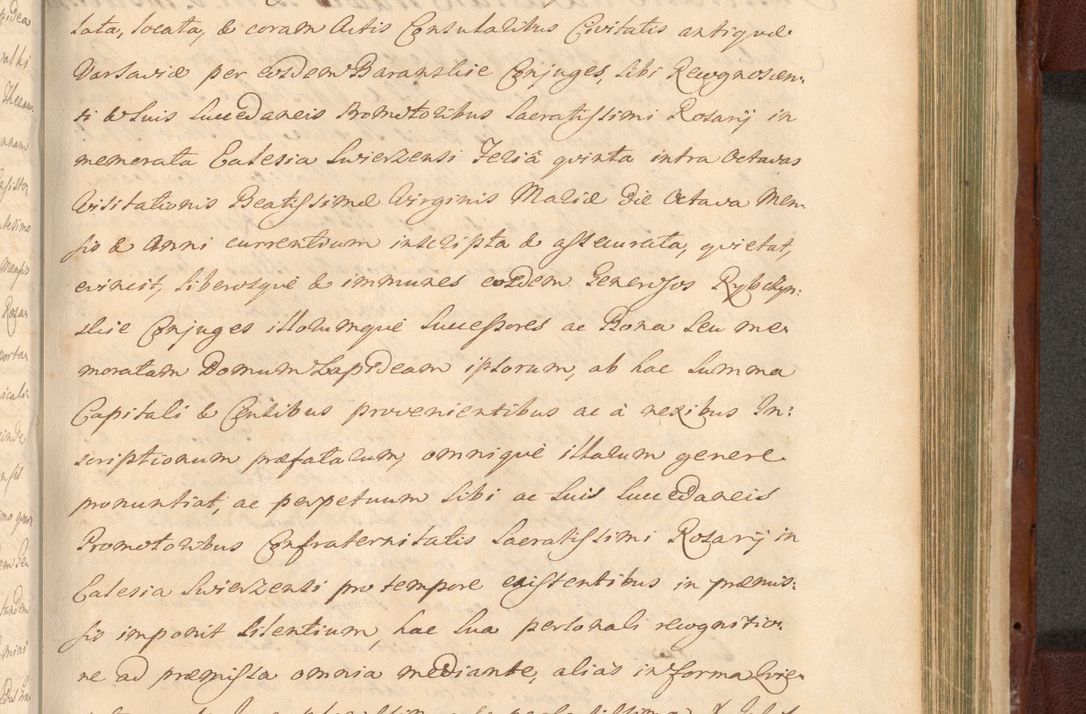 lata, locata, & coram Actis Consularibus Civitatis antiquæ
Varsaviæ per eosdem Baranskie Conjuges, sibi Recognoscen:
ti & suis Succedaneis Promotoribus Sacratissimi Rosarij in
memorata Eclesia Swierzensi Feriâ quinta intra Octavas
Visitationis Beatissimæ Virginis Mariæ Die Octava Men:
sis & Anni currentium inscripta & assecurata, quietat,
evincit, liberosque & immunes eosdem Generosos Rybczyn:
skie Conjuges illorumque Successores ac Bona seu me:
moratam Domum Lapideam ipsorum, ab hac Summa
Capitali & Censibus provenientibus ac à nexibus In:
scriptionum præfatarum, omnique illarum genere
pronuntiat, ac perpetuum sibi ac suis Succedaneis
Promotoribus Confraternitatis Sacratissimi Rosarij in
Eclesia Swierzensi pro tempore existentibus in præmis:
sis imponit Silentium, hac sua personali recognitio:
ne ad præmissa omnia mediante, alias in forma